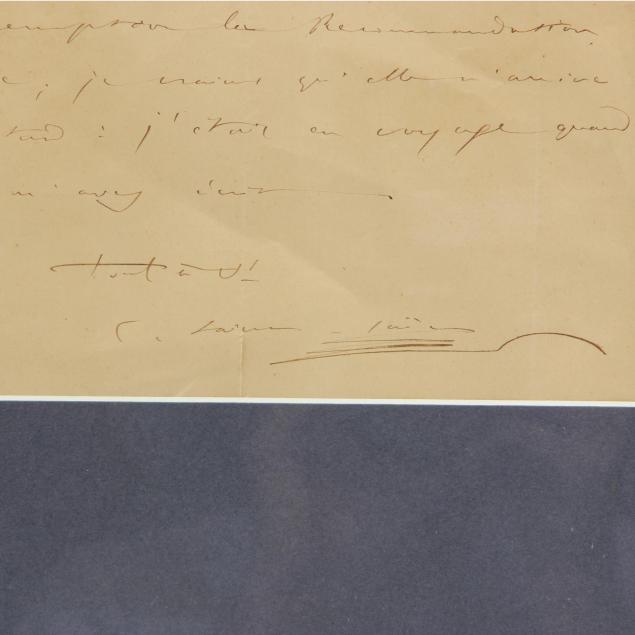 la Recommandation,
, je crains qu'elle n'arrive
tard : j'étais en voyage quand
m'avez écrit
Tout à vs
C. Saint-Saëns